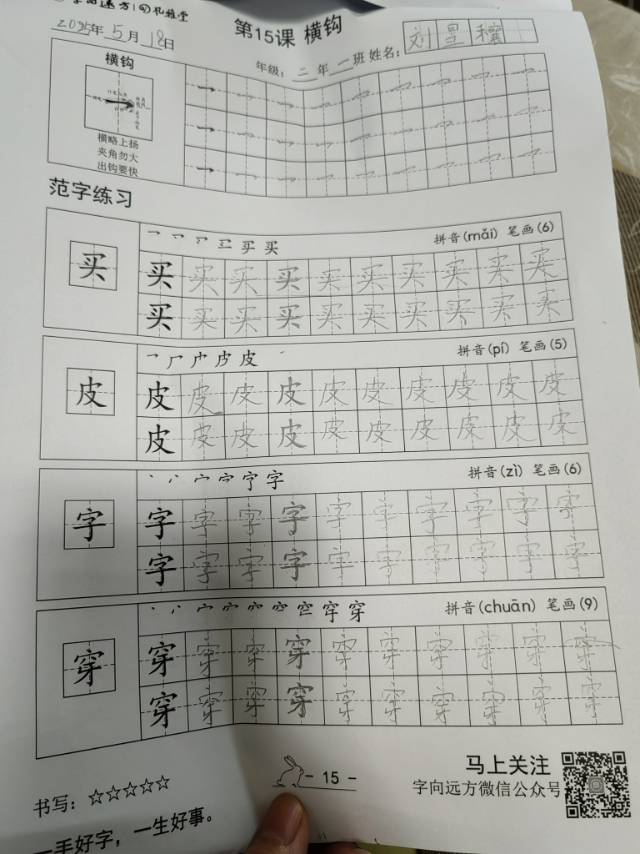 第15课 横钩
2025年5月18日
年级：二年一班 姓名：刘星穰
横钩
横略上扬
夹角勿大
出钩要快
范字练习
买 拼音(mǎi) 笔画(6)
买 买 买 买 买 买 买 买 买 买
买 买 买 买 买 买 买 买 买 买
皮 拼音(pí) 笔画(5)
皮 皮 皮 皮 皮 皮 皮 皮 皮 皮
皮 皮 皮 皮 皮 皮 皮 皮 皮 皮
字 拼音(zì) 笔画(6)
字 字 字 字 字 字 字 字 字 字
字 字 字 字 字 字 字 字 字 字
穿 拼音(chuān) 笔画(9)
穿 穿 穿 穿 穿 穿 穿 穿 穿 穿
穿 穿 穿 穿 穿 穿 穿 穿 穿 穿
书写：☆☆☆☆☆
- 15 -
马上关注
字向远方微信公众号
一手好字，一生好事。